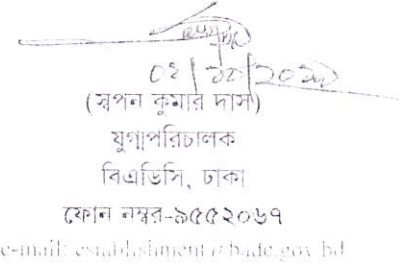 (স্বপন কুমার দাস)
যুগ্মপরিচালক
বিএডিসি, ঢাকা
ফোন নম্বর-৯৫৫২০৬৭
e-mail: establishment@badc.gov.bd